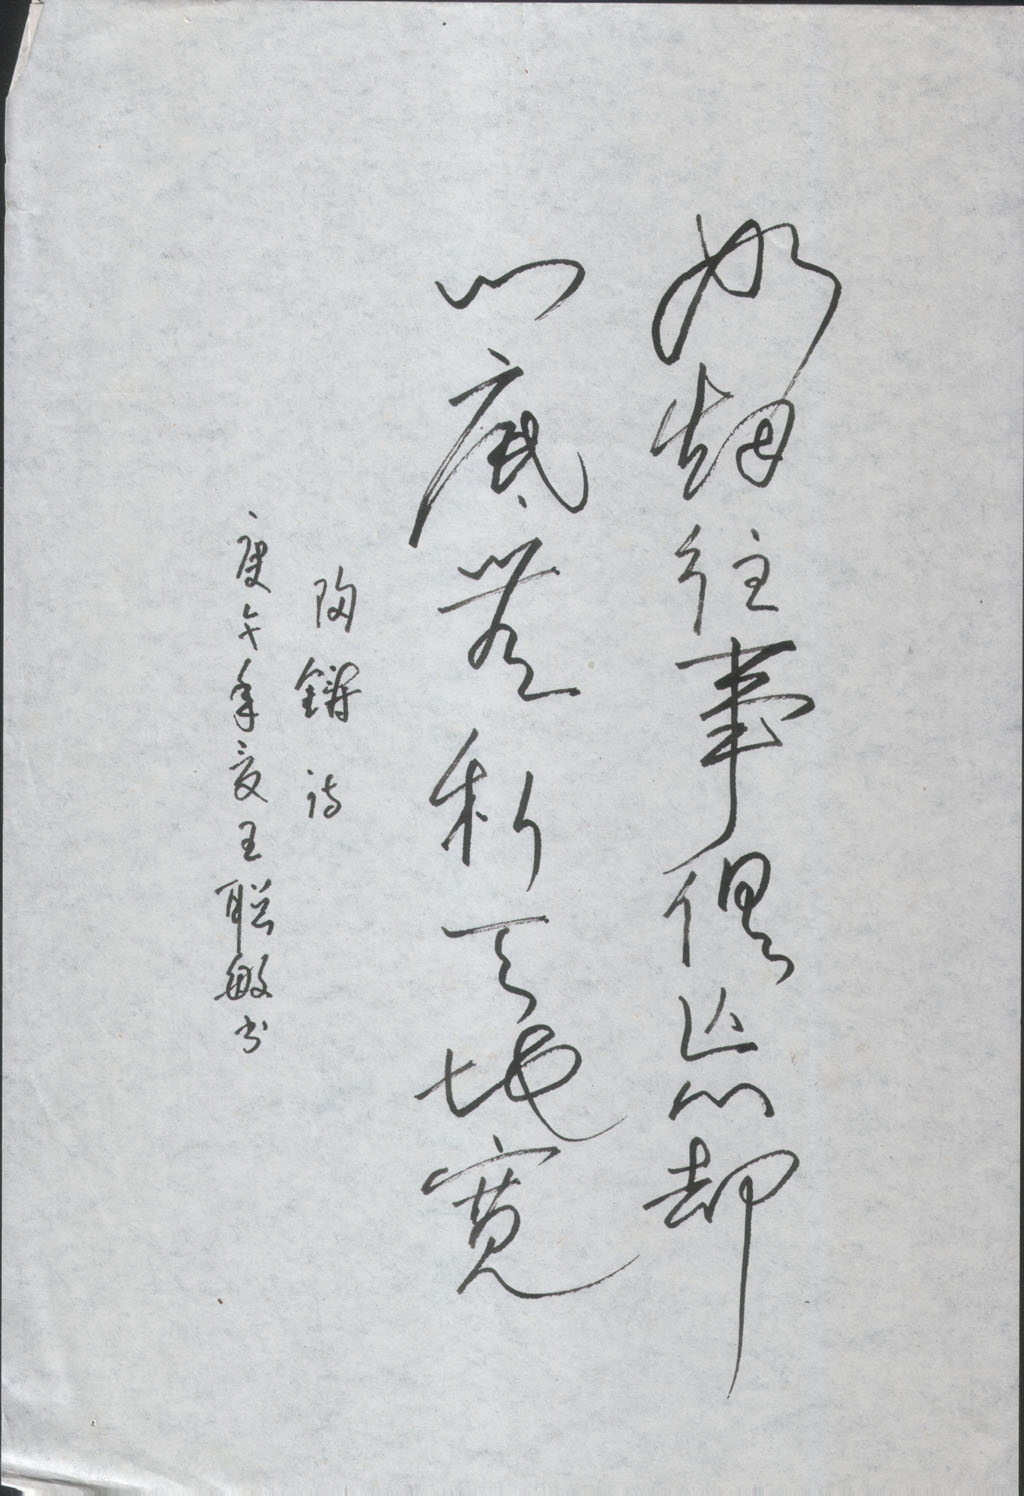 如烟往事俱忘却
心底无私天地宽
陶铸诗
庚午年夏王聪敏书